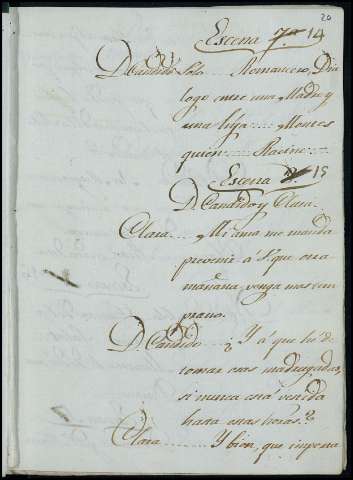 20
Escena 7.ª 14
D. Candido Solo.... Romancero, Dia
logo entre una Madre y
una hija.... Montes
quieu.... Racine....
Escena 15
D. Candido y Clara.
Clara.... Mi ama me manda
prevenir á V. que otra
mañana venga mas tem
prano.
D. Candido.... ¿Y á que he de
tomar esas madrugadas,
si nunca está vestida
hasta estas horas?
Clara.... Y bien, que importa